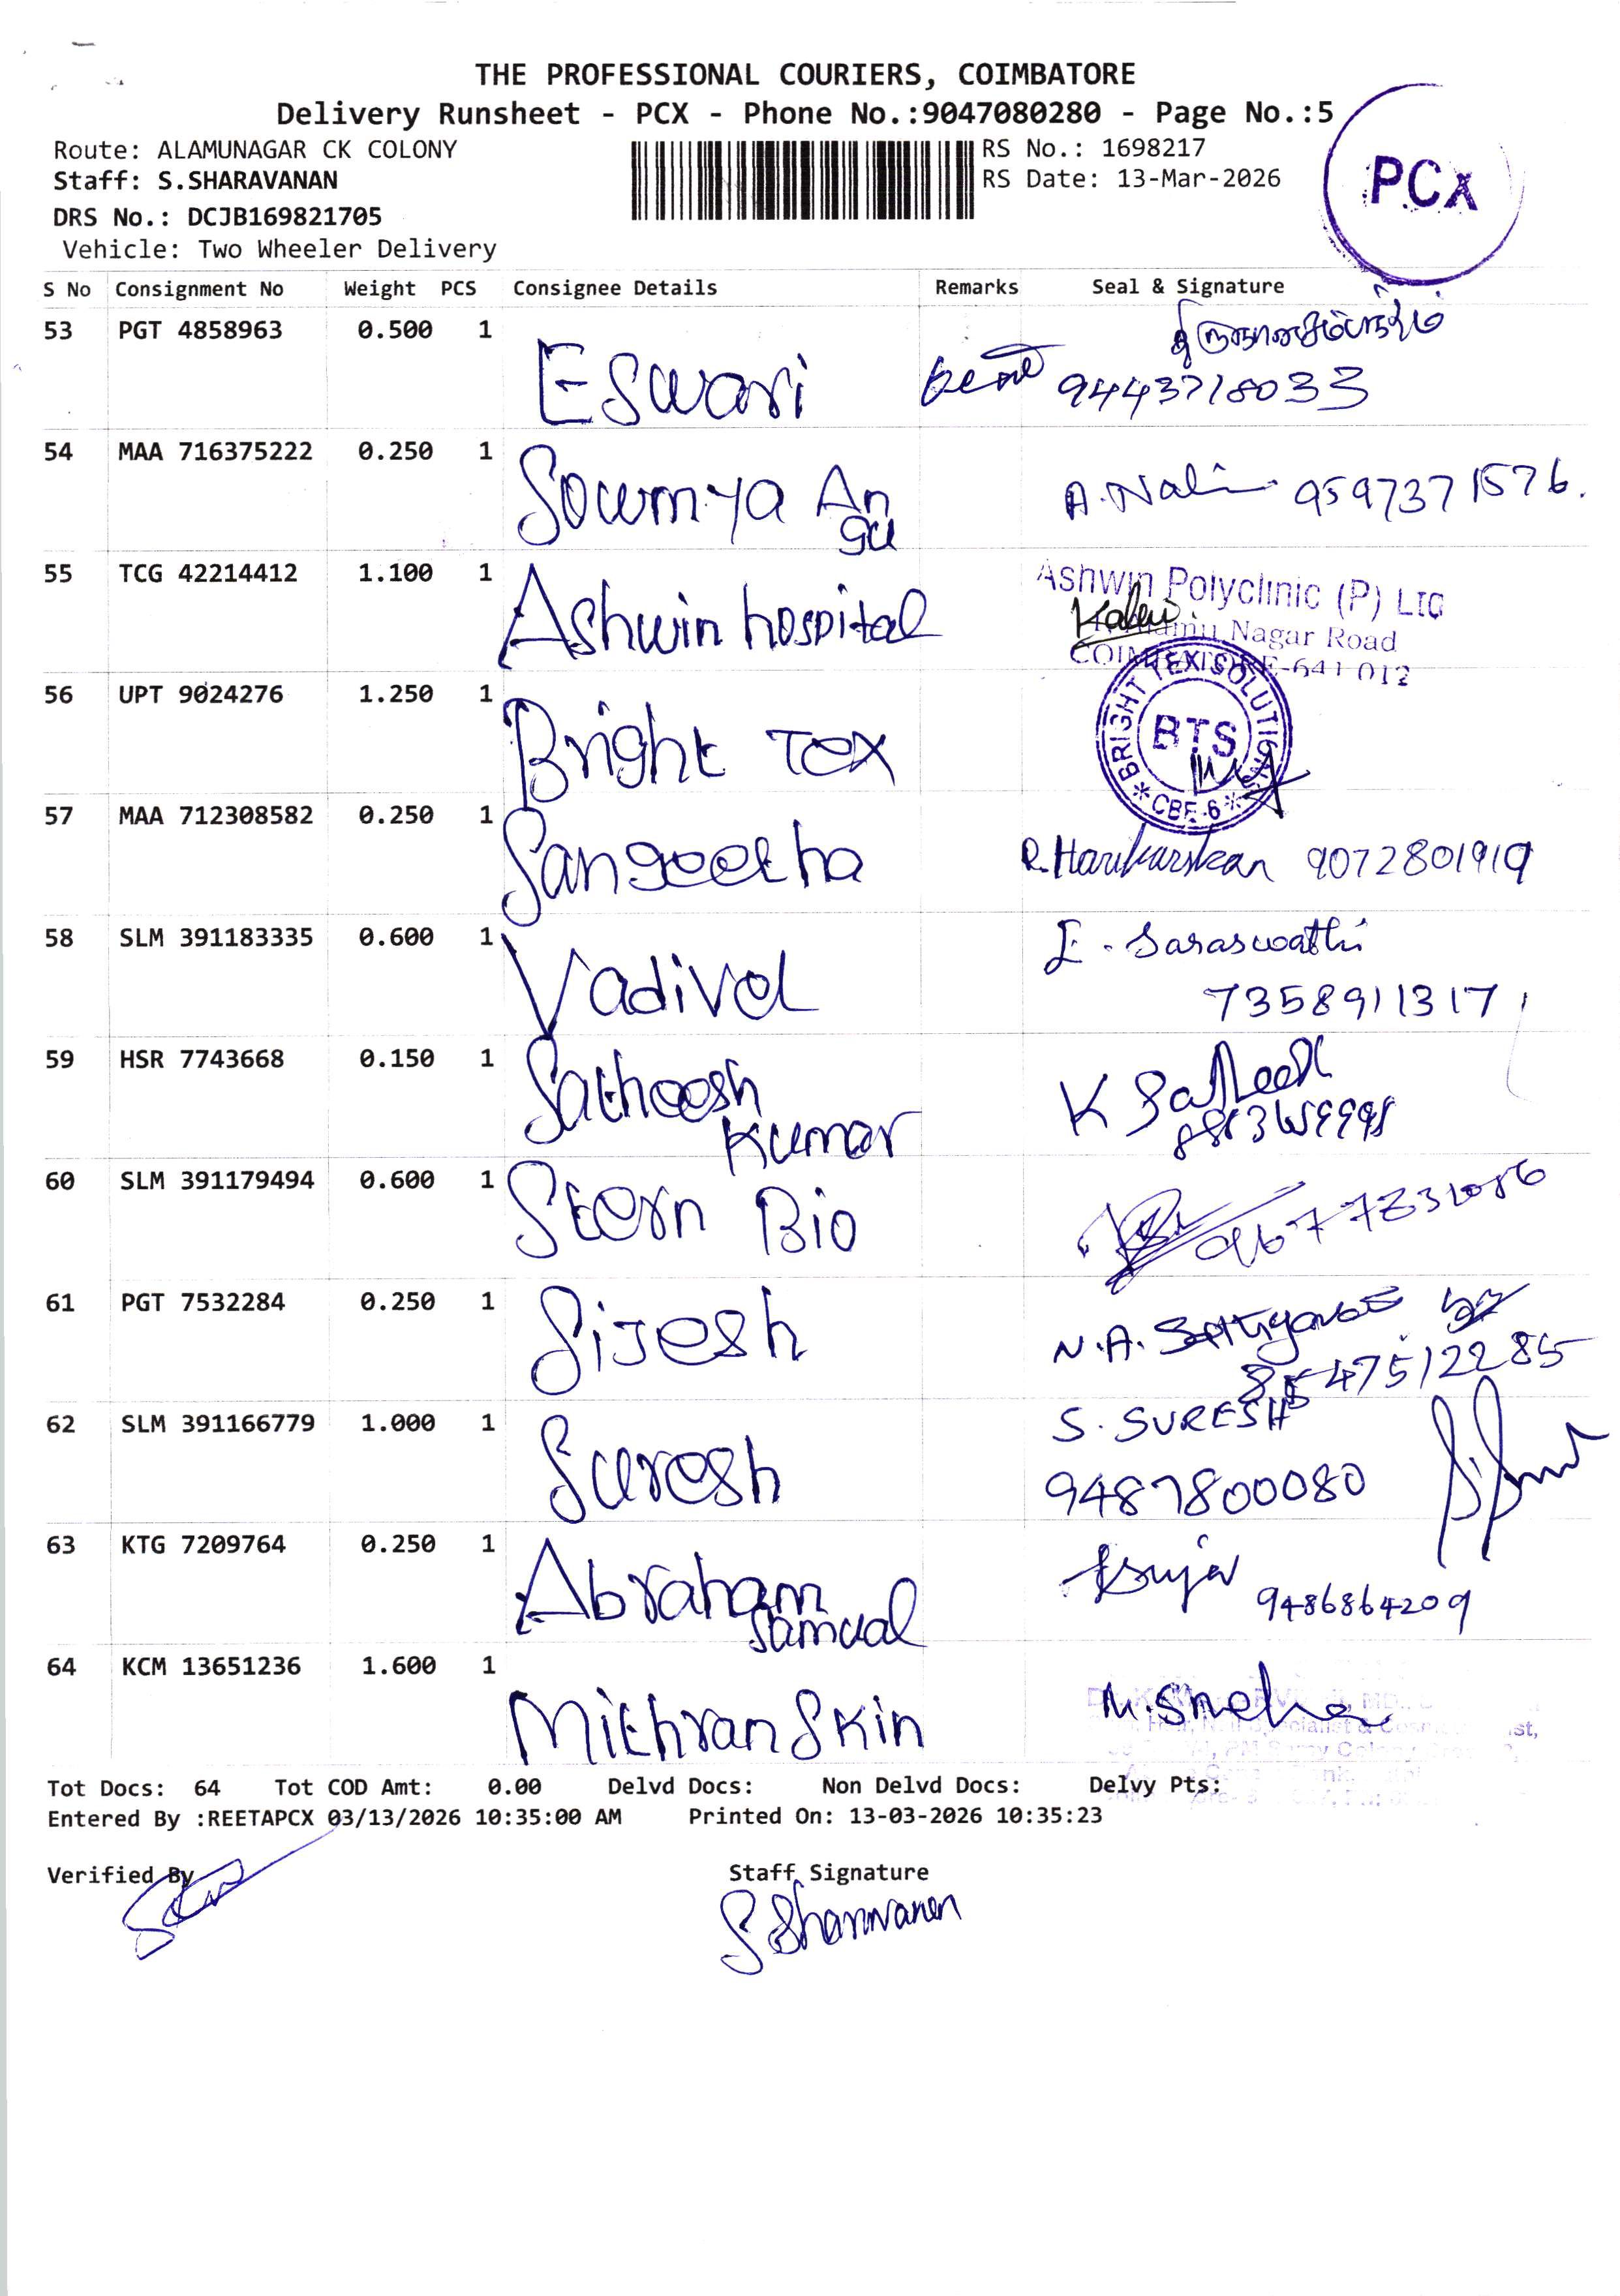 THE PROFESSIONAL COURIERS, COIMBATORE
Delivery Runsheet - PCX - Phone No.:9047080280 - Page No.:5
Route: ALAMUNAGAR CK COLONY
RS No.: 1698217
Staff: S.SHARAVANAN
RS Date: 13-Mar-2026
PCX
DRS No.: DCJB169821705
Vehicle: Two Wheeler Delivery
S No Consignment No Weight PCS Consignee Details Remarks Seal & Signature
53 PGT 4858963 0.500 1 Eswari 9443718033
54 MAA 716375222 0.250 1 Sowmya An gu A. Nali 9597371576.
55 TCG 42214412 1.100 1 Ashwin hospital
Ashwin Polyclinic (P) Ltd
Nagar Road
COIMBATORE-641 012
56 UPT 9024276 1.250 1 Bright Tex
BRIGHT TEXI SOLUTION BTS * CBE-6 *
57 MAA 712308582 0.250 1 Sangeetha 9072801919
58 SLM 391183335 0.600 1 Vadivel E. Saraswathi
7358911317
59 HSR 7743668 0.150 1 Satheesh Kumar
60 SLM 391179494 0.600 1 Stern Bio
61 PGT 7532284 0.250 1 Sijesh N.A.
62 SLM 391166779 1.000 1 Suresh S. SURESH
9487800080
63 KTG 7209764 0.250 1 Abraham Samual 9486864209
64 KCM 13651236 1.600 1 Mithran Skin M. Sneha
Tot Docs: 64 Tot COD Amt: 0.00 Delvd Docs: Non Delvd Docs: Delvy Pts:
Entered By :REETAPCX 03/13/2026 10:35:00 AM Printed On: 13-03-2026 10:35:23
Verified By Staff Signature
S Sharavanan